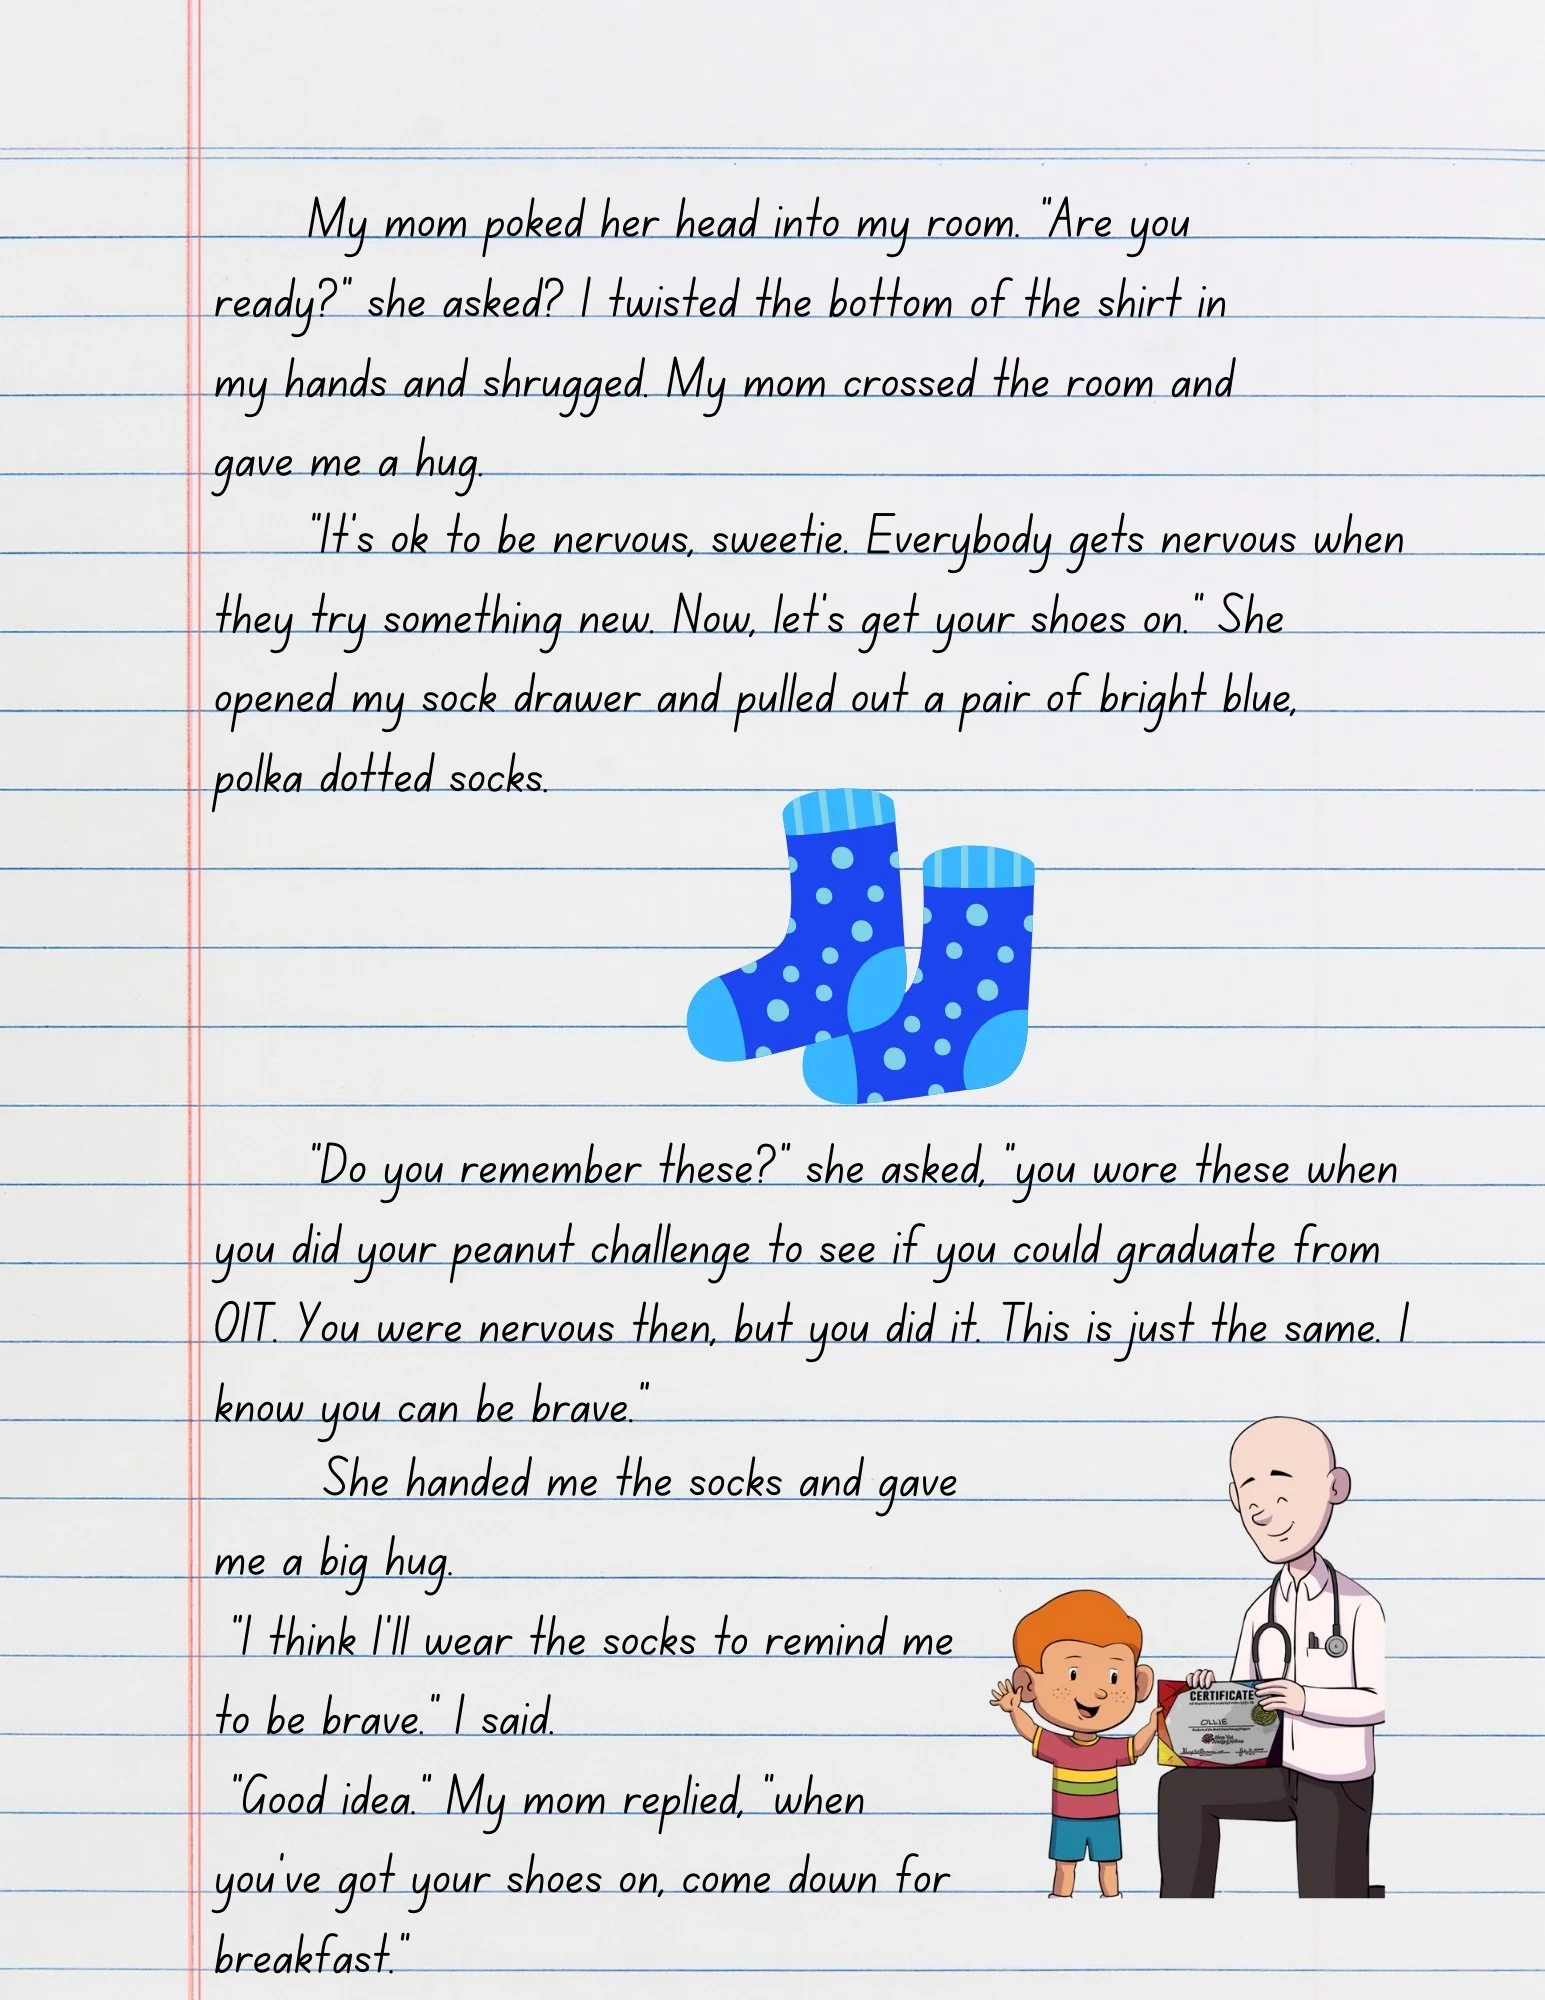 My mom poked her head into my room. "Are you
ready?" she asked? I twisted the bottom of the shirt in
my hands and shrugged. My mom crossed the room and
gave me a hug.
"It's ok to be nervous, sweetie. Everybody gets nervous when
they try something new. Now, let's get your shoes on." She
opened my sock drawer and pulled out a pair of bright blue,
polka dotted socks.
"Do you remember these?" she asked, "you wore these when
you did your peanut challenge to see if you could graduate from
OIT. You were nervous then, but you did it. This is just the same. I
know you can be brave."
She handed me the socks and gave
me a big hug.
"I think I'll wear the socks to remind me
to be brave." I said.
"Good idea." My mom replied, "when
you've got your shoes on, come down for
breakfast."
CERTIFICATE
OLLIE